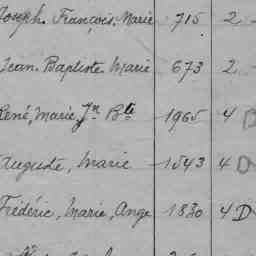 Joseph François, Marie 715 2
Jean Baptiste Marie 673 2
René, Marie, Jn Bte 1965 4 D
Auguste, Marie 1543 4 D
Frédéric, Marie, Ange 1830 4 D